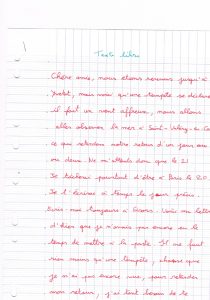 Texte libre
Chère amie, nous étions revenus jusqu'à
Yvetot, mais voici qu'une tempête se déclare
il fait un vent affreux, nous allons
aller observer la mer à Saint-Valéry-en-Caux
ce qui retardera notre retour d'un jour ou
ou deux. Ne m'attends donc que le 21
Je tâcherai pourtant d'être à Paris le 20.
Je t'écrirai à temps le jour précis.
Ecris-moi toujours à Gisors. Voici ma lettre
d'hier que je n'avais pas encore eu le
temps de mettre à la poste. Il ne faut
rien moins qu'une tempête, chose que
je n'ai pas encore vue, pour retarder
mon retour, j'ai tant besoin de te